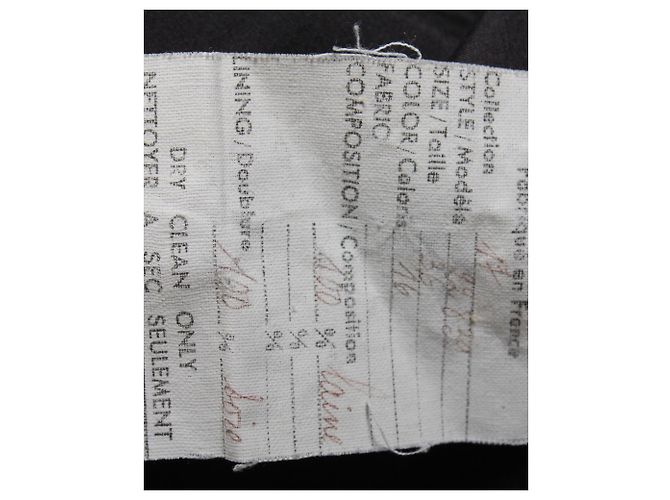 Fabriqué en France
Collection
STYLE / Modéls
SIZE / Taille
COLOR / Coloris 16
FABRIC
COMPOSITION / Composition
100 % laine
%
%
LINING / Doublure
100 % soie
DRY CLEAN ONLY
NETTOYER A SEC SEULEMENT